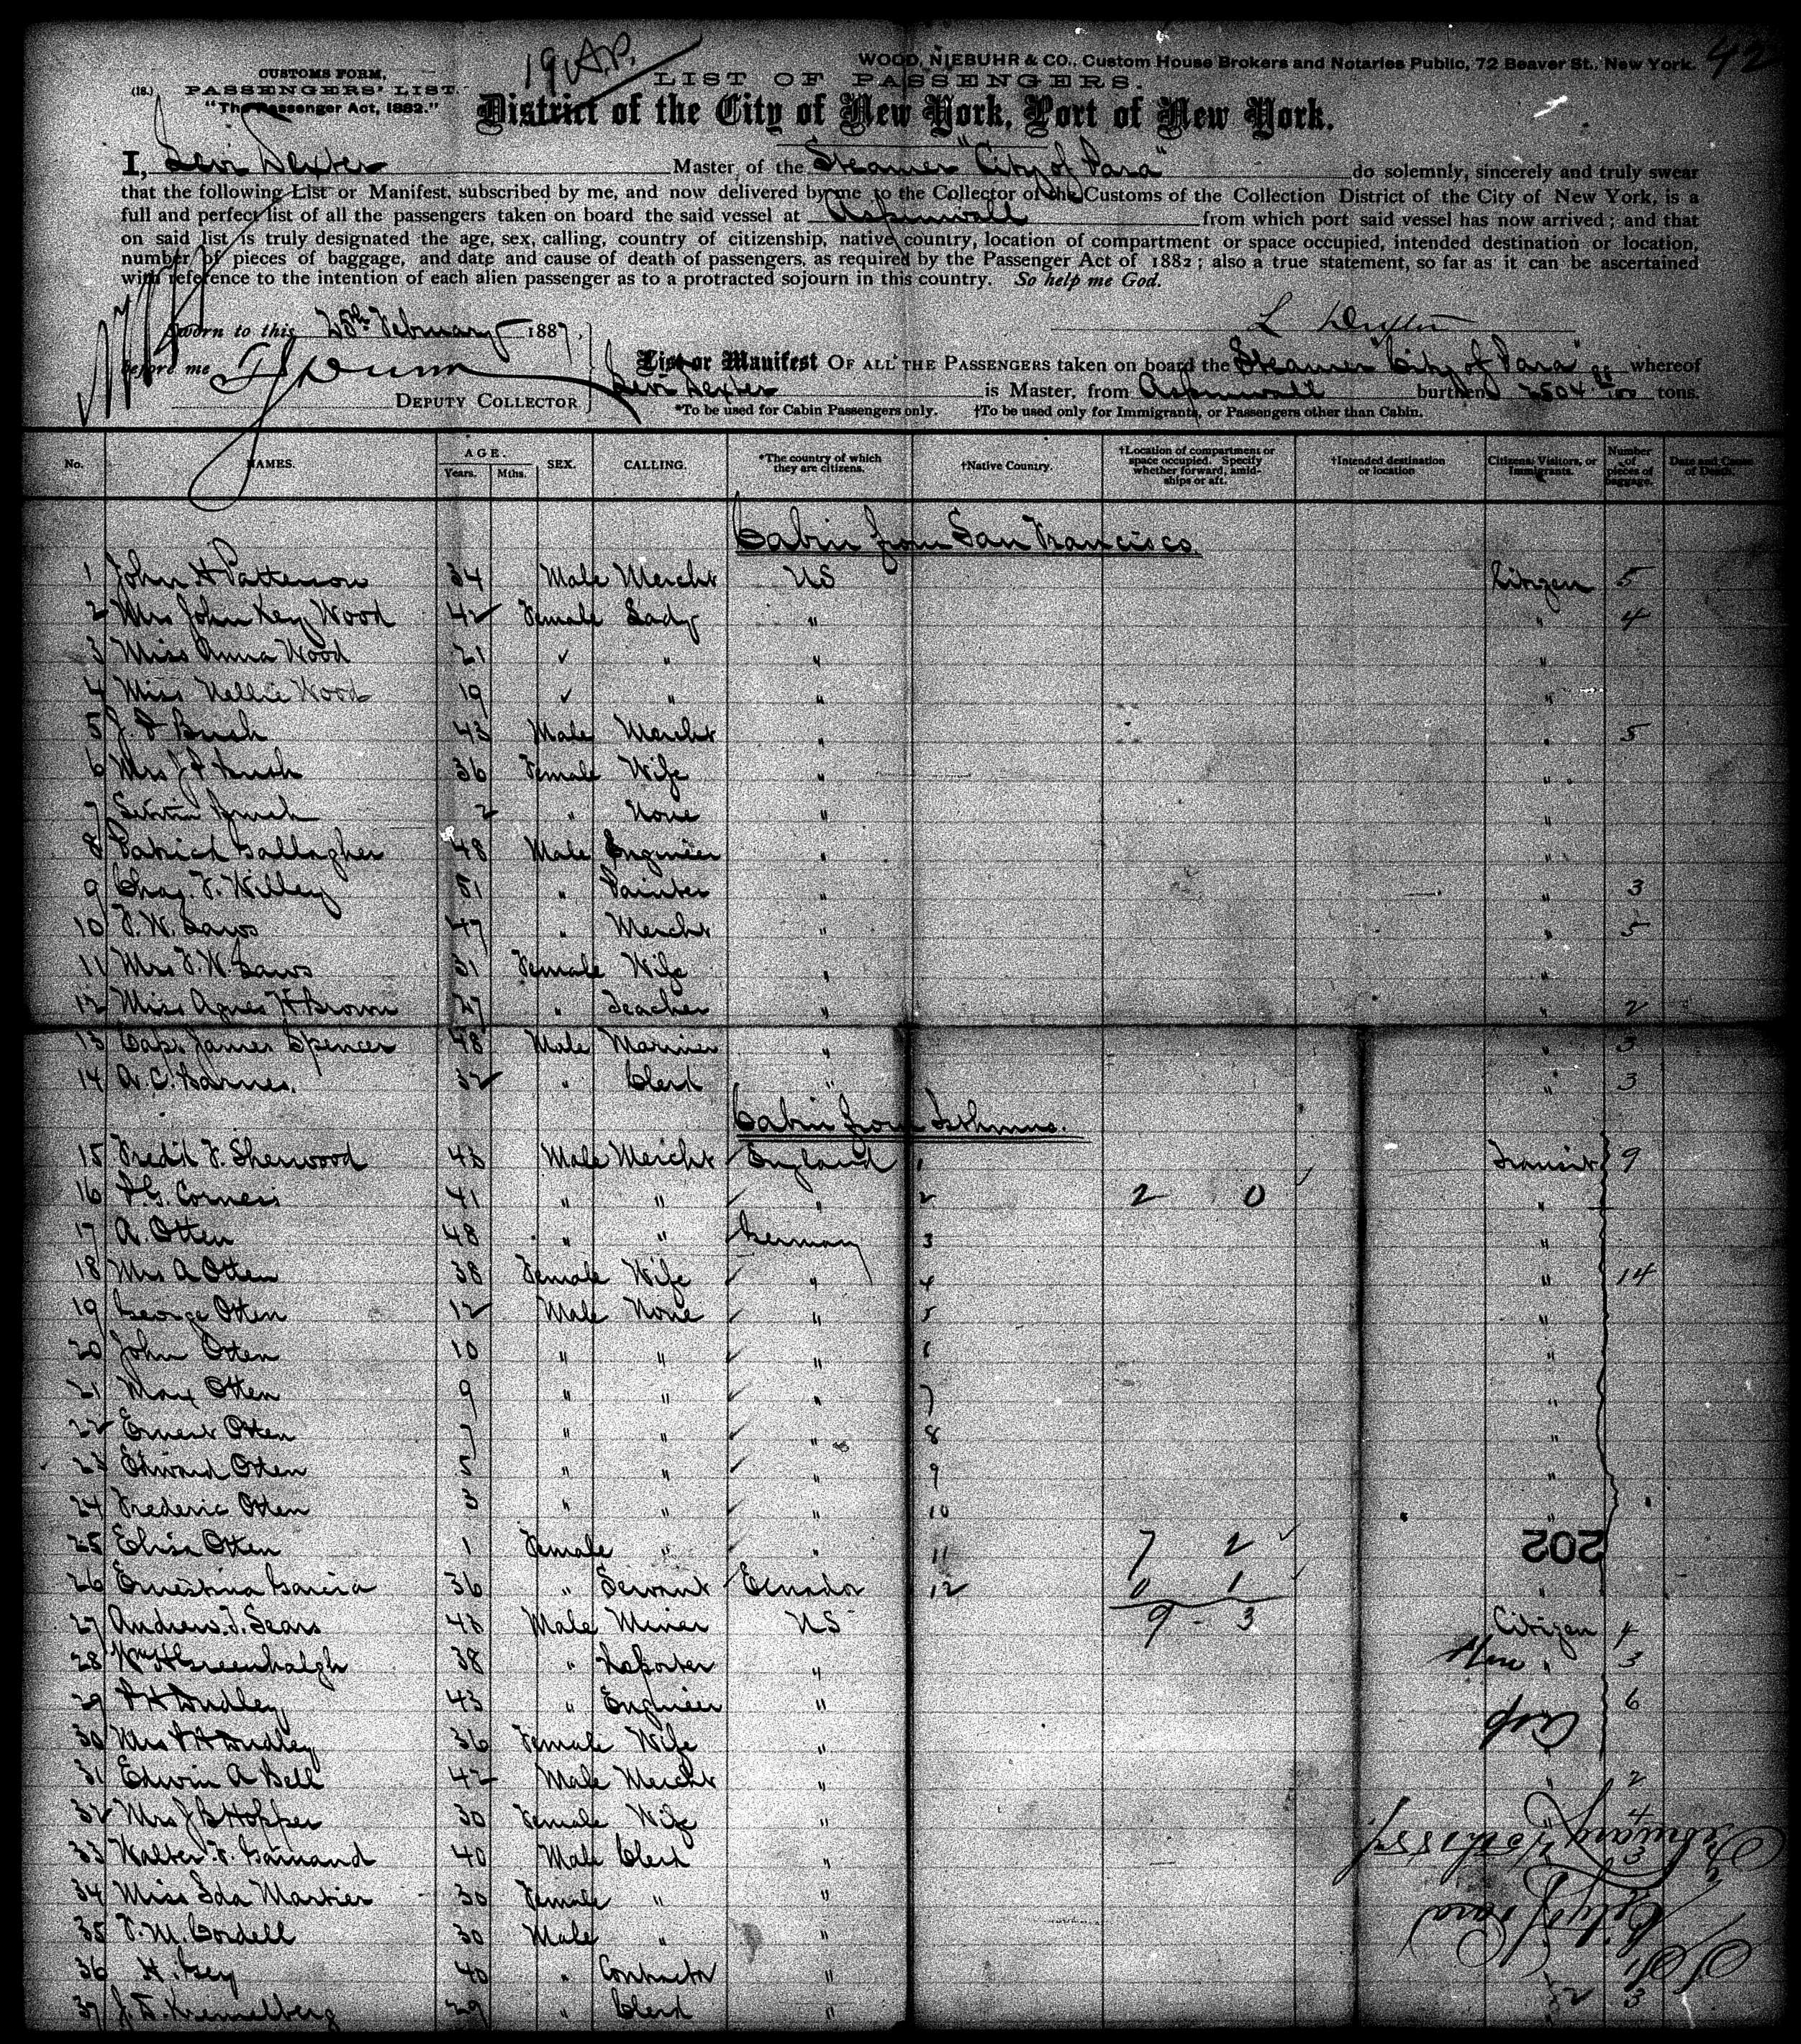 42
19 A.P.
WOOD, NIEBUHR & CO., Custom House Brokers and Notaries Public, 72 Beaver St., New York.
CUSTOMS FORM,
(18.) PASSENGERS' LIST.
"The Passenger Act, 1882."
LIST OF PASSENGERS.
District of the City of New York, Port of New York.
I, Levi Dexter Master of the Steamer "City of Para" do solemnly, sincerely and truly swear
that the following List or Manifest, subscribed by me, and now delivered by me to the Collector of the Customs of the Collection District of the City of New York, is a
full and perfect list of all the passengers taken on board the said vessel at Aspinwall from which port said vessel has now arrived; and that
on said list is truly designated the age, sex, calling, country of citizenship, native country, location of compartment or space occupied, intended destination or location,
number of pieces of baggage, and date and cause of death of passengers, as required by the Passenger Act of 1882; also a true statement, so far as it can be ascertained
with reference to the intention of each alien passenger as to a protracted sojourn in this country. So help me God.
Sworn to this 25th February 1887,
L Dexter
before me
DEPUTY COLLECTOR
List or Manifest OF ALL THE PASSENGERS taken on board the Steamer "City of Para" whereof
Levi Dexter is Master, from Aspinwall burthen 3504 /100 tons.
*To be used for Cabin Passengers only. †To be used only for Immigrants, or Passengers other than Cabin.
No. NAMES. AGE. Years. Mths. SEX. CALLING. *The country of which they are citizens. †Native Country. †Location of compartment or space occupied. Specify whether forward, amidships or aft. †Intended destination or location Citizens, Visitors, or Immigrants. Number of pieces of baggage. Date and Cause of Death.
Cabin from San Francisco
1 John H Patterson 34 Male Mercht US Citizen 5
2 Mrs John Key Wood 42 Female Lady " " 4
3 Miss Anna Wood 21 ✓ " " "
4 Miss Nellie Wood 19 ✓ " " "
5 J. F Bush 43 Male Mercht " " 5
6 Mrs J F Bush 36 Female Wife " "
7 Bush 2 " None " "
8 Patrick Gallagher 48 Male Engineer " "
9 Chas. F. Willey 51 " Painter " " 3
10 F. W. Laws 47 " Mercht " " 5
11 Mrs F. W. Laws 31 Female Wife " "
12 Miss Agnes H Brown 27 " Teacher " " 2
13 Capt James Spencer 48 Male Mariner " " 3
14 A. C. Barnes. 32 " Clerk " " 3
Cabin from Isthmus.
15 Fredk F. Sherwood 43 Male Mercht England 1 Transit 9
16 Corneis 41 " " " 2 2 0 "
17 A. Otten 48 " " Germany 3 "
18 Mrs A Otten 38 Female Wife " 4 " 14
19 George Otten 12 Male None " 5 "
20 John Otten 10 " " " 6 "
21 Max Otten 9 " " " 7 "
22 Ernest Otten 7 " " " 8 "
23 Edward Otten 5 " " " 9 "
24 Frederic Otten 3 " " " 10 "
25 Elisa Otten 1 Female " " 11 7 2
202
26 Ernestina Garcia 36 " Servant Ecuador 12 0 1 "
27 Andrew J. Sears 43 Male Miner US 9 - 3 Citizen 4
28 Wm H Greenhalgh 38 " Reporter " " 3
29 P H Dudley 43 " Engineer " 6
30 Mrs P H Dudley 36 Female Wife "
31 Edwin A Bell 42 Male Mercht " " 2
32 Mrs J B Hopper 30 Female Wife " " 4
33 Walter F. Garnand 40 Male Clerk " 3
February 25th 1887
34 Miss Ida Martier 30 Female " "
City of Para
35 F. M. Cordell 30 Male " "
36 H. Gey 40 " Contractor "
37 J. D. Krimelberg 29 " Clerk " 3